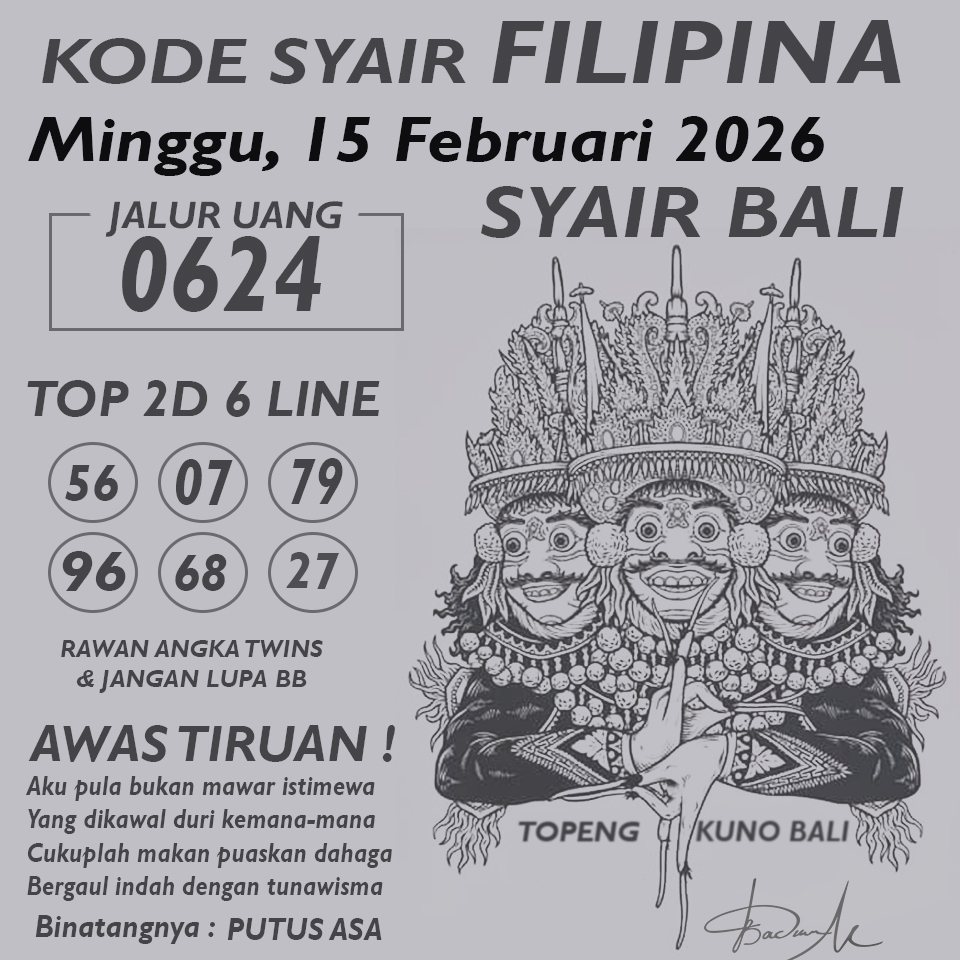 KODE SYAIR FILIPINA
Minggu, 15 Februari 2026
SYAIR BALI
JALUR UANG
0624
TOP 2D 6 LINE
56 07 79
96 68 27
RAWAN ANGKA TWINS
& JANGAN LUPA BB
AWAS TIRUAN !
Aku pula bukan mawar istimewa
Yang dikawal duri kemana-mana
Cukuplah makan puaskan dahaga
Bergaul indah dengan tunawisma
Binatangnya : PUTUS ASA
TOPENG KUNO BALI